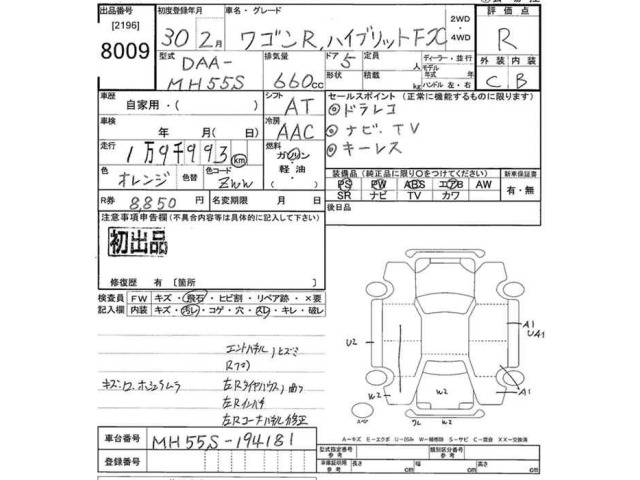 出品番号 初度登録年月 車名・グレード 2WD 評価点
[2196]
8009 30年2月 ワゴンR ハイブリットFX ・4WD R
型式 排気量 ドア 定員 ディーラー・並行
DAA- 5 人 モデル 外装 内装
MH55S 660cc 形状 積載 年式 年
kg ハンドル 左・右 C B
車歴 シフト セールスポイント(正常に機能するものに限ります)
自家用・( ) AT ◎ドラレコ
車検 冷房 ◎ナビ.TV
年 月(日) AAC ◎キーレス
走行 燃料
1万9千993km ガソリン
色 色替 色コード 軽油 装備品(純正品に限り○をつけてください) 新車保証書
オレンジ ZWW ・( ) PS PW ABS エアB AW 有・無
R券 8,850円 名変期限 月 日 SR ナビ TV カワ
注意事項申告欄(不具合内容等は具体的に記入して下さい) 後日品
初出品
修復歴 有〔箇所 〕
検査員 FW キズ・飛石・ヒビ割・リペア跡・×要
記入欄 内装 キズ・汚レ・コゲ・穴・スレ・キレ・破レ
A1
U2 UA1
エンドパネル,ヒズミ
Rフロ
左Rタイヤハウス,曲り
左Rインパネ
左Rコーナパネル修正
A1
W2 W2 W2
車台番号 MH55S-194181
A-キズ E-エクボ U-凹み W-補修跡 S-サビ C-腐食 XX-交換済
登録番号 型式指定番号 参考 類別区分番号 参考
車検証明用 参考 長さ cm 幅 cm 高さ cm